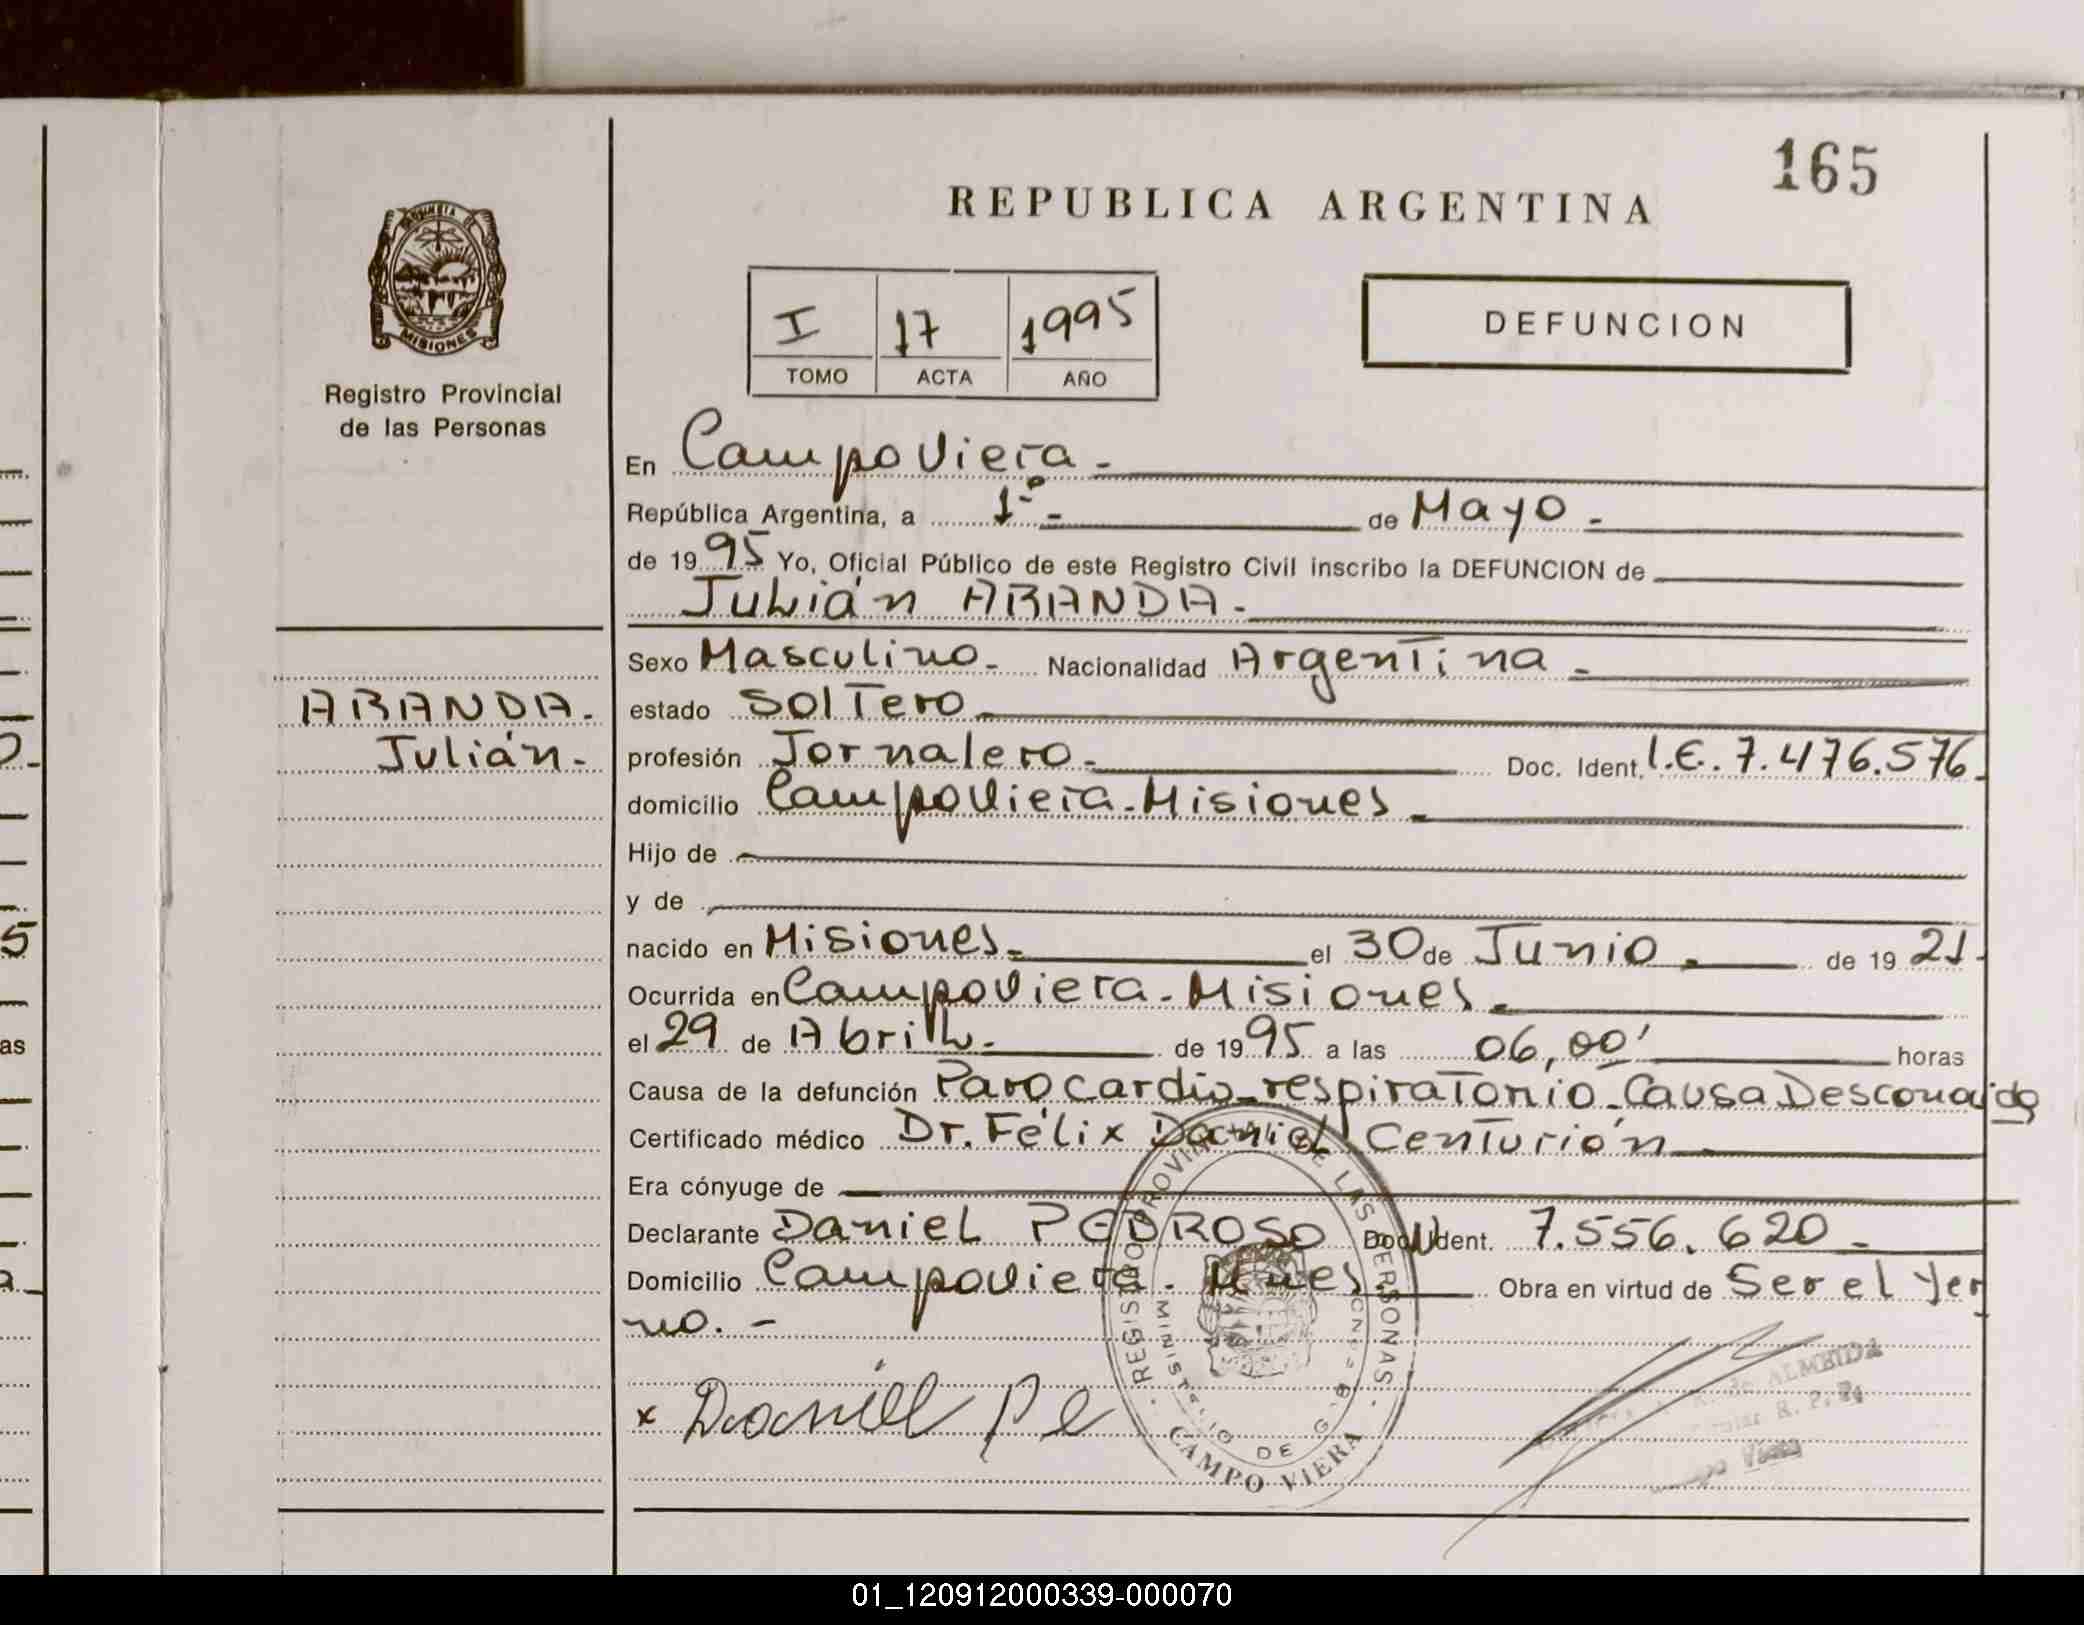 165
REPUBLICA ARGENTINA
PROVINCIA DE
MISIONES
Registro Provincial
de las Personas
I 17 1995
TOMO ACTA AÑO
DEFUNCION
En Campo Viera -
República Argentina, a 1º - de Mayo -
de 1995 Yo, Oficial Público de este Registro Civil inscribo la DEFUNCION de
Julián ARANDA.-
Sexo Masculino.- Nacionalidad Argentina -
ARANDA.
Julián.-
estado Soltero
profesión Jornalero.- Doc. Ident. l.E. 7.476.576.
domicilio Campo Viera - Misiones
Hijo de
y de
nacido en Misiones el 30 de Junio de 1921.
Ocurrida en Campo Viera - Misiones
el 29 de Abril.- de 1995 a las 06,00' horas
Causa de la defunción Paro cardio-respiratorio - Causa Desconocida
Certificado médico Dr. Félix Daniel Centurión
Era cónyuge de
Declarante Daniel PEDROSO Doc. Ident. 7.556.620 -
Domicilio Campo Viera - Mnes. Obra en virtud de Ser el Yer
no. -
x Daniel Pe
REGISTRO PROVINCIAL DE LAS PERSONAS
MINISTERIO DE
CAMPO VIERA
de ALMEIDA
Viera
01_120912000339-000070